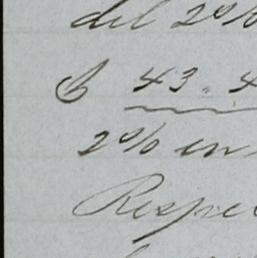 del 2%
$ 43.4
2% en
Respe